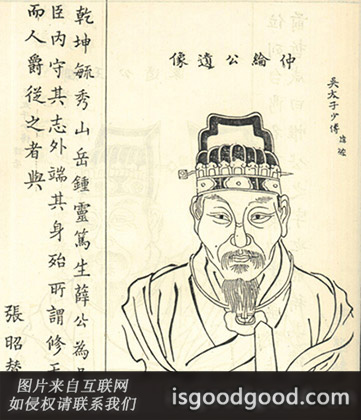 仲綸公遺像
吳太子少傅
乾坤毓秀山岳鍾靈篤生薛公為
臣內守其志外端其身殆所謂修
而人爵從之者與
張昭贊
图片来自互联网
如侵权请联系我们
isgoodgood.com